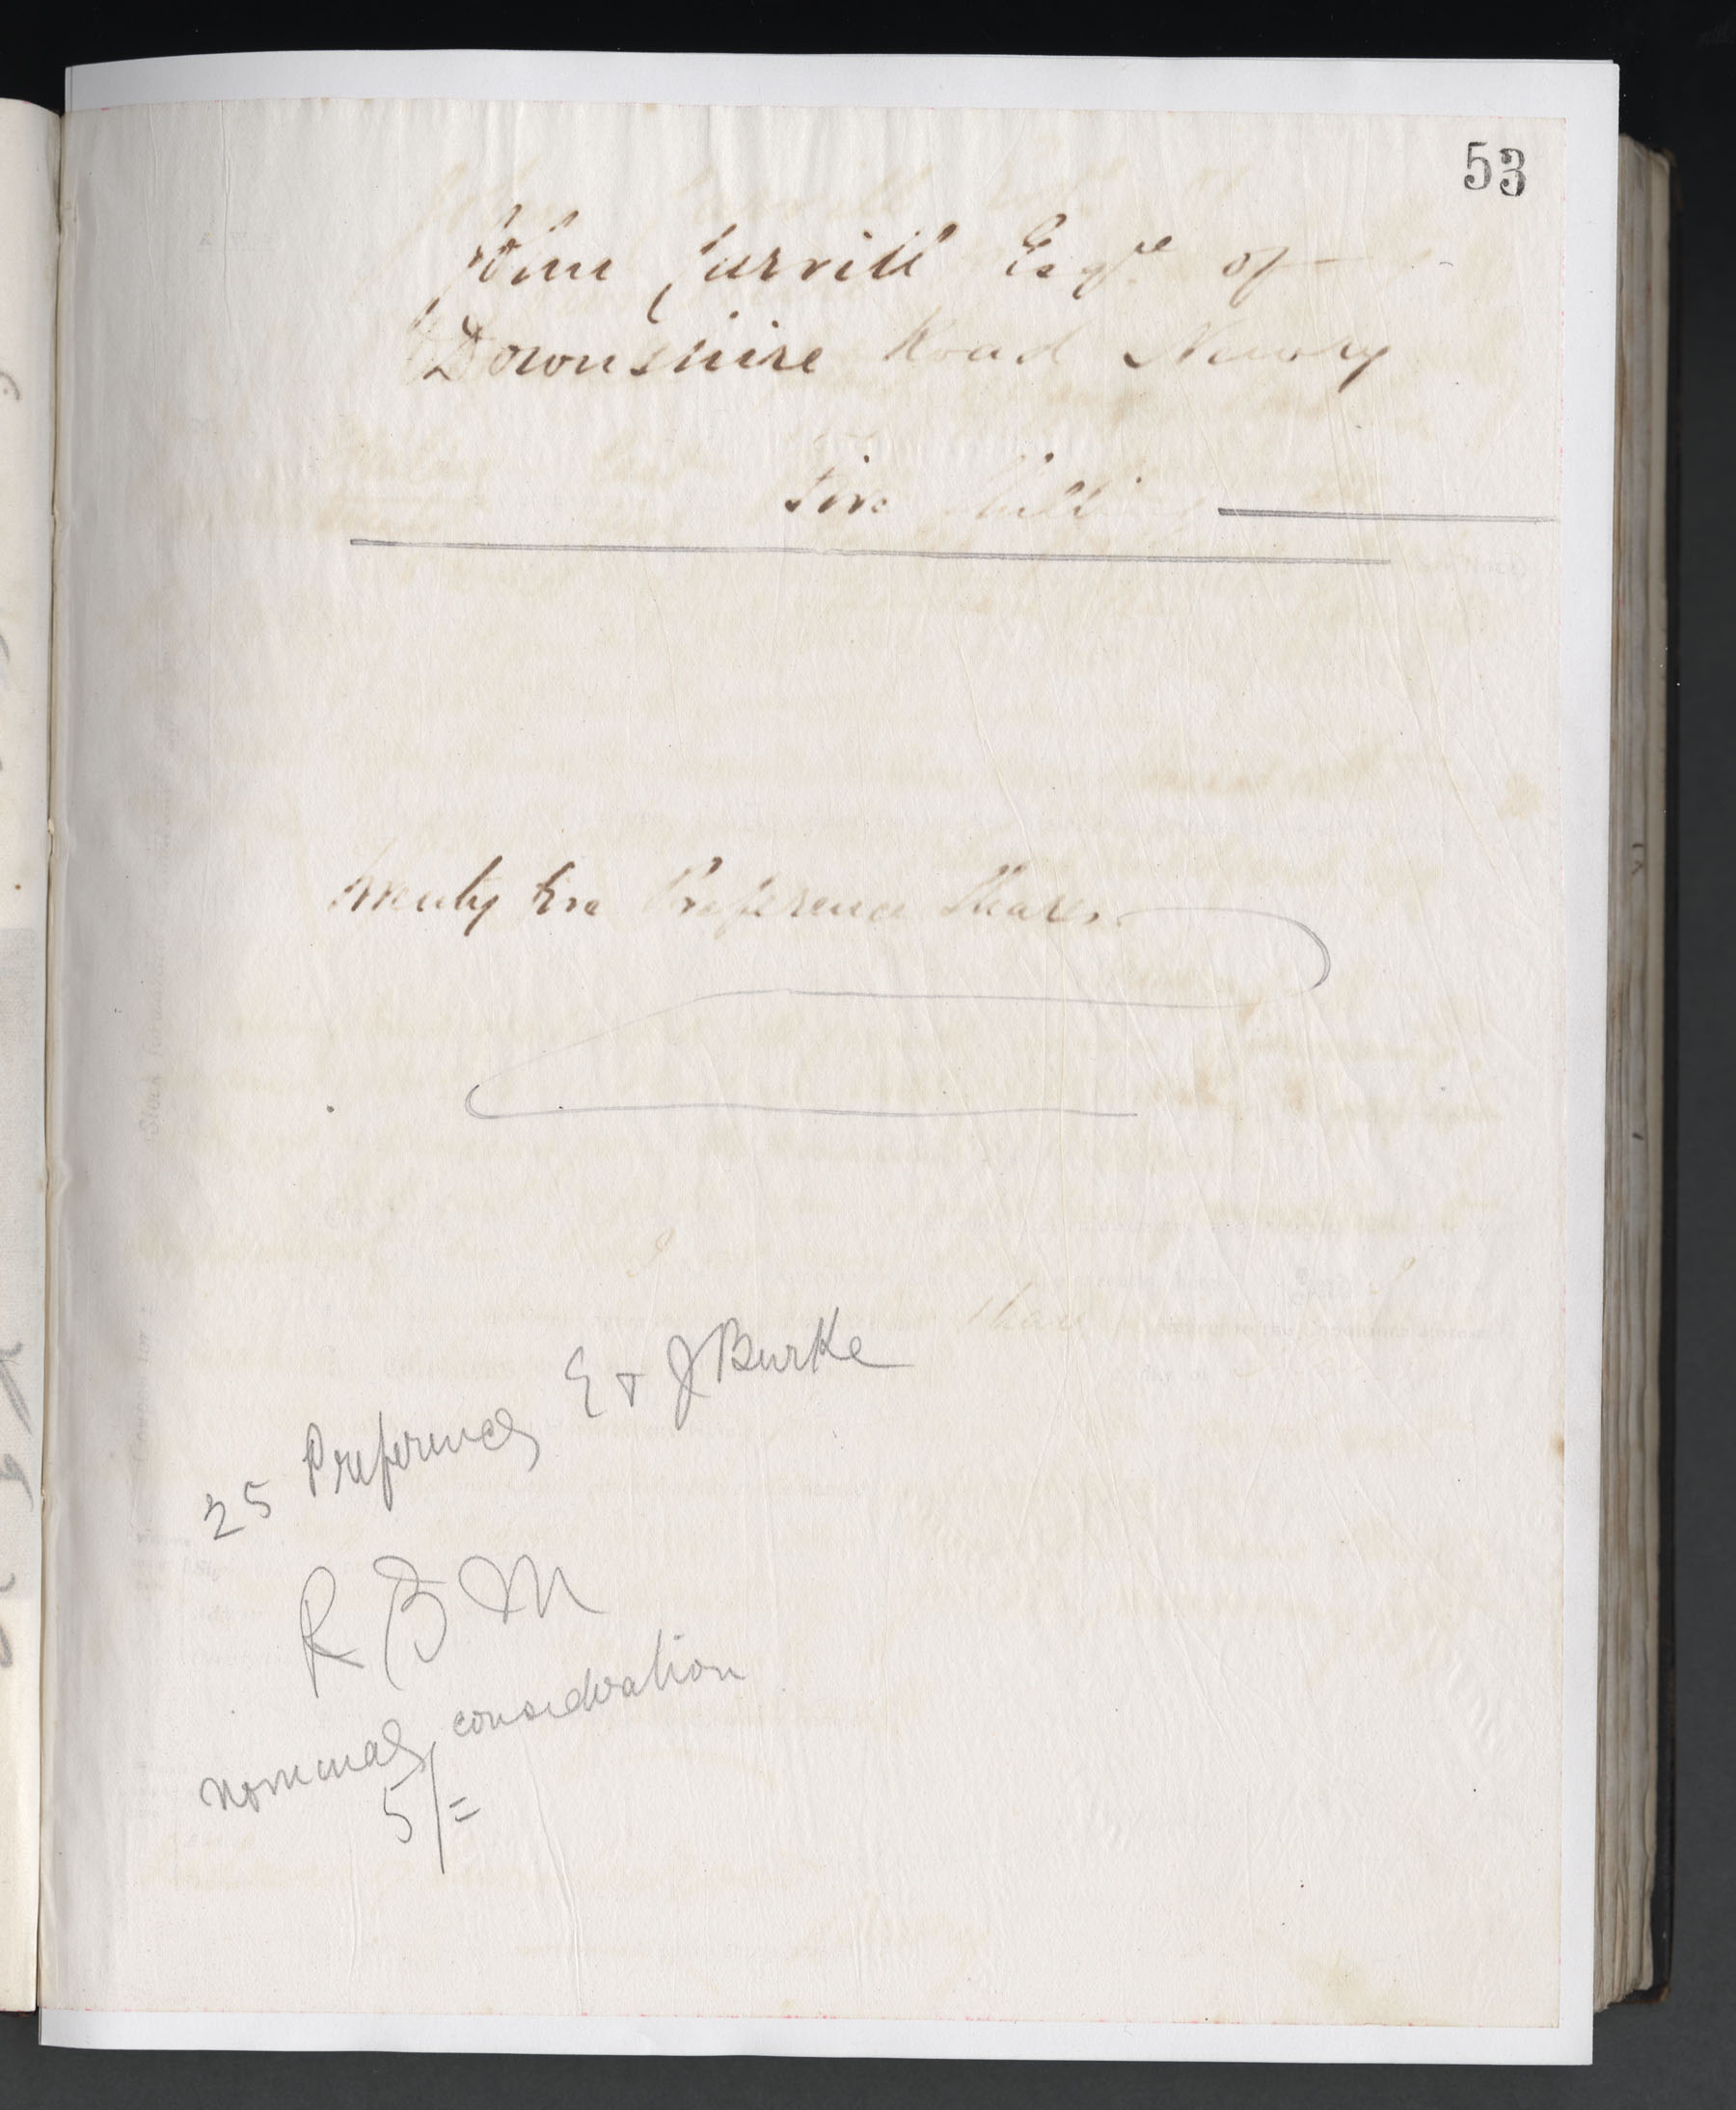 53
John Jarvill Esqre of
Downshire Road Newry
Five Shillings
Twenty five Preference Shares
Share
25 Preference E & J Burke
R B M
nominal consideration
5/=